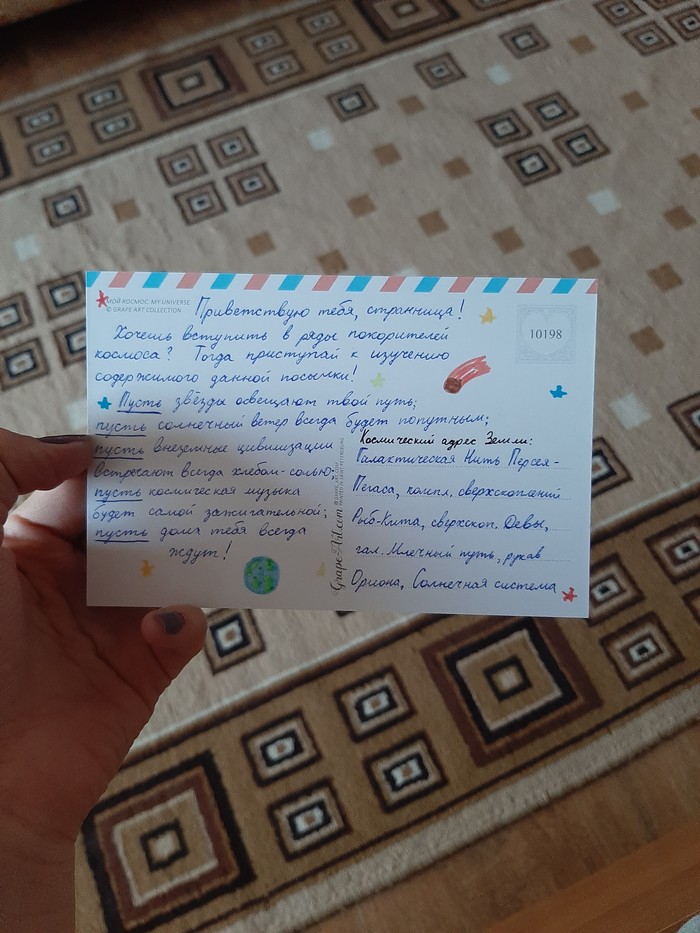 МОЙ КОСМОС. MY UNIVERSE
© GRAPE ART COLLECTION
Приветствую тебя, странница!
10198
Хочешь вступить в ряды покорителей
космоса? Тогда приступай к изучению
содержимого данной посылки!
Пусть звёзды освещают твой путь;
пусть солнечный ветер всегда будет попутным;
пусть внеземные цивилизации
встречают всегда хлебом-солью;
пусть космическая музыка
будет самой зажигательной;
пусть дома тебя всегда
ждут!
GrapeArt.com
Космический адрес Земли:
Галактическая Нить Персея-
Пегаса, компл. сверхскоплений
Рыб-Кита, сверхскоп. Девы,
гал. Млечный путь, рукав
Ориона, Солнечная система